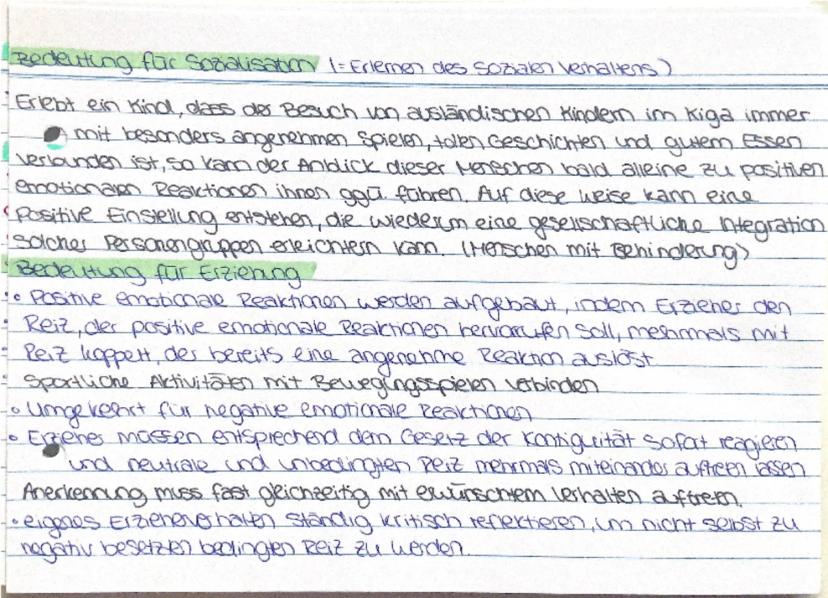 Bedeutung für Sozialisation (=Erlernen des sozialen Verhaltens)
Erlebt ein Kind, dass der Besuch von ausländischen Kindern im Kiga immer
mit besonders angenehmen Spielen, tollen Geschichten und gutem Essen
verbunden ist, so kann der Anblick dieser Menschen bald alleine zu positiven
emotionalen Reaktionen ihnen ggü. führen. Auf diese Weise kann eine
positive Einstellung entstehen, die wiederum eine gesellschaftliche Integration
solcher Personengruppen erleichtern kann. (Menschen mit Behinderung)
Bedeutung für Erziehung
• Positive emotionale Reaktionen werden aufgebaut, indem Erzieher den
Reiz, der positive emotionale Reaktionen hervorrufen soll, mehrmals mit
Reiz koppelt, der bereits eine angenehme Reaktion auslöst
Sportliche Aktivitäten mit Bewegungsspielen verbinden
• Umgekehrt für negative emotionale Reaktionen
• Erzieher müssen entsprechend dem Gesetz der Kontiguität sofort reagieren
und neutrale und unbedingten Reiz mehrmals miteinander auftreten lassen
Anerkennung muss fast gleichzeitig mit erwünschtem Verhalten auftreten.
• eigenes Erzieherverhalten ständig kritisch reflektieren, um nicht selbst zu
negativ besetzten bedingten Reiz zu werden.